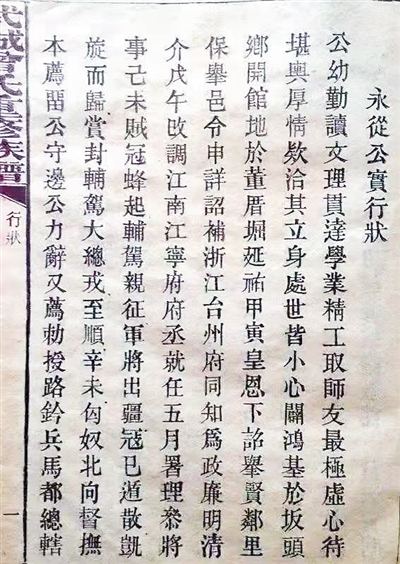 永從公實行狀
公幼勤讀文理貫達學業精工取師友最極虛心待
堪輿厚情欵洽其立身處世皆小心闢鴻基於坂頭
鄉開館地於董厝堀延祐甲寅皇恩下詔舉賢鄰里
保舉邑令申詳詔補浙江台州府同知爲政廉明清
介戊午改調江南江寧府府丞就任五月署理叅將
事己未賊冠蜂起輔駕親征軍將出疆冠已遁散凱
旋而歸賞封輔駕大總戎至順辛未匈奴北向督撫
本薦畱公守邊公力辭又薦勅授路鈐兵馬都總轄
武城曾氏重修族譜
行狀
一